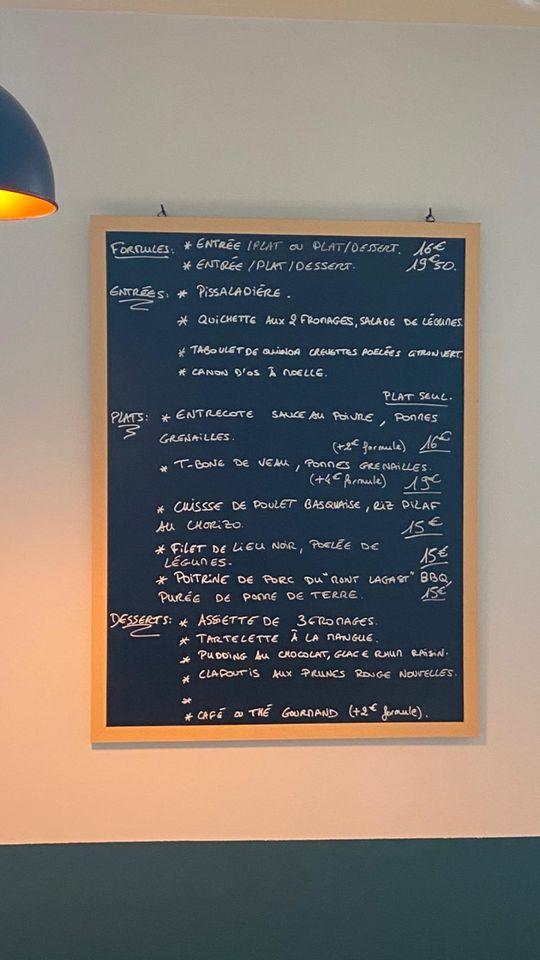 FORMULES: * ENTRÉE/PLAT OU PLAT/DESSERT. 16€
* ENTRÉE/PLAT/DESSERT. 19€50.
ENTRÉES: * PISSALADIÈRE.
* QUICHETTE AUX 2 FROMAGES, SALADE DE LÉGUMES.
* TABOULET DE QUINOA CREVETTES POELÉES CITRON VERT.
* CANON D'OS À MOELLE.
PLAT SEUL.
PLATS: * ENTRECOTE SAUCE AU POIVRE, POMMES
GRENAILLES. (+2€ formule) 16€
* T-BONE DE VEAU, POMMES GRENAILLES.
(+4€ formule) 19€
* CUISSSE DE POULET BASQUAISE, RIZ PILAF
AU CHORIZO. 15€
* FILET DE LIEU NOIR, POELÉE DE
LÉGUMES. 15€
* POITRINE DE PORC DU "MONT LAGAST" BBQ,
PURÉE DE POMME DE TERRE. 15€
DESSERTS: * ASSIETTE DE 3 FROMAGES.
* TARTELETTE À LA MANGUE.
* PUDDING AU CHOCOLAT, GLACE RHUM RAISIN.
* CLAFOUTIS AUX PRUNES ROUGE NOUVELLES.
*
* CAFÉ OU THÉ GOURMAND (+2€ formule).